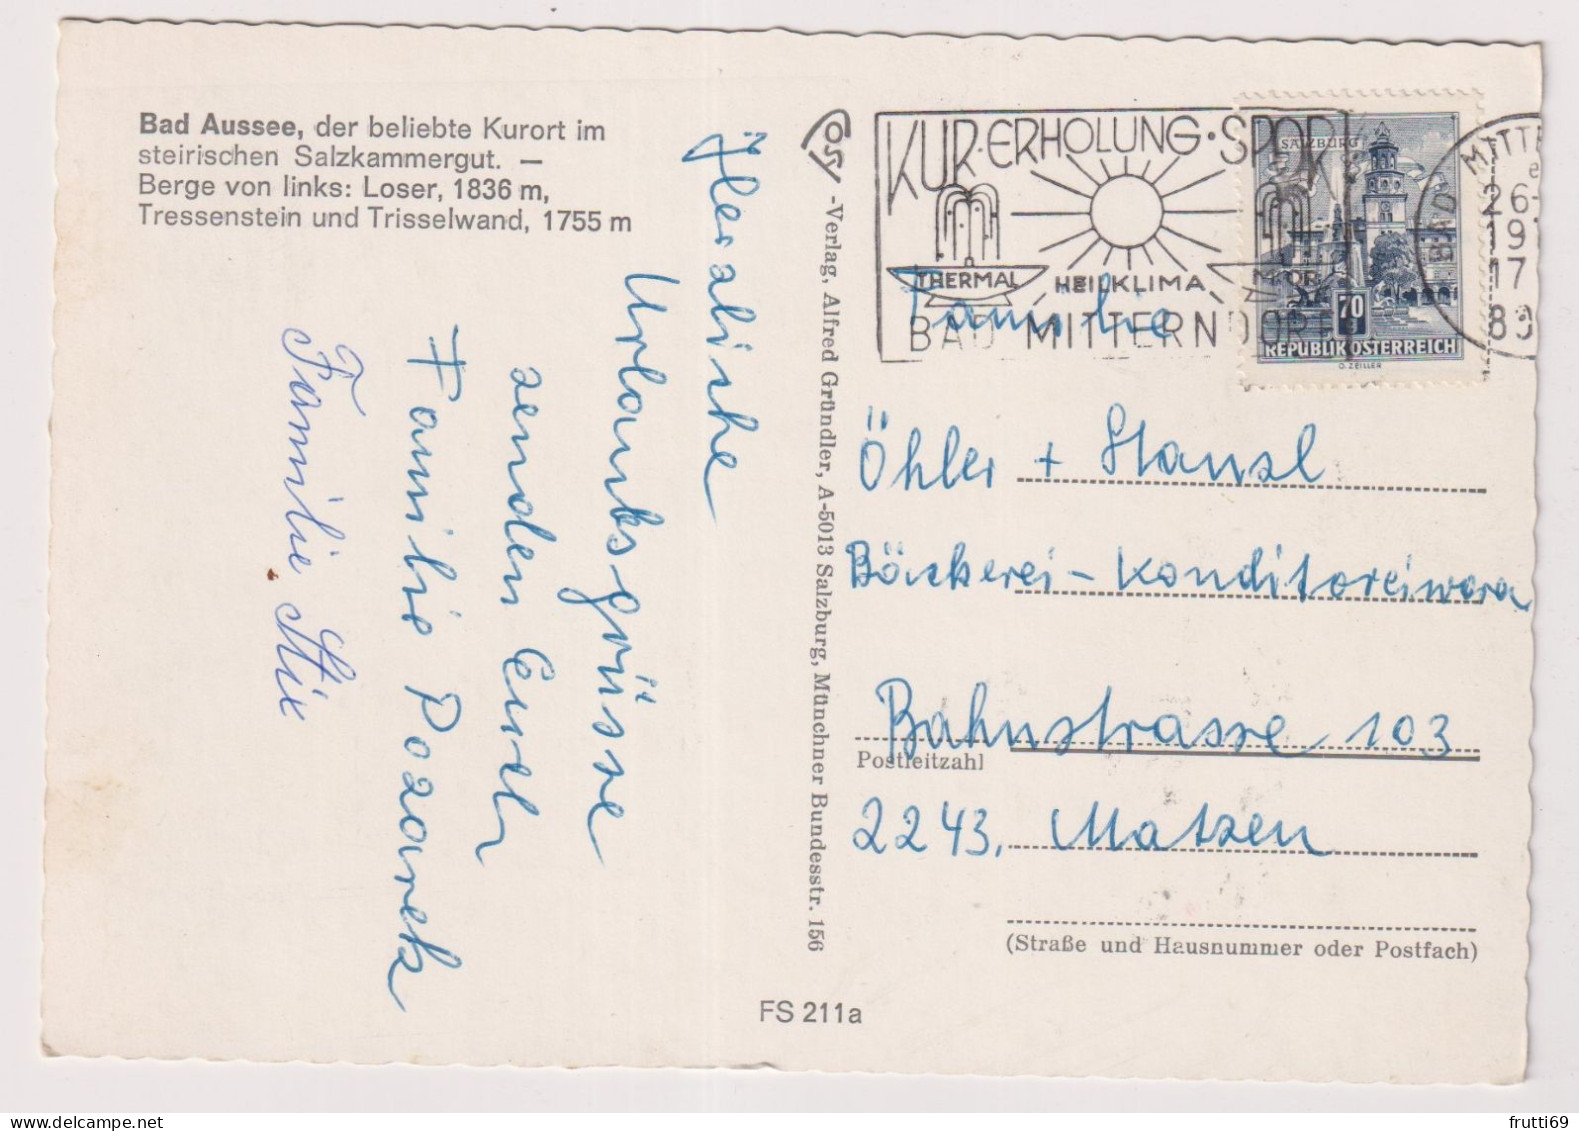 Bad Aussee, der beliebte Kurort im
steirischen Salzkammergut. —
Berge von links: Loser, 1836 m,
Tressenstein und Trisselwand, 1755 m
Herzliche
Urlaubsgrüsse
senden Euch
Familie Pozarek
Familie Stix
-Verlag, Alfred Gründler, A-5013 Salzburg, Münchner Bundesstr. 156
FS 211a
KUR·ERHOLUNG·SPORT
THERMAL HEILKLIMA MOOR
BAD MITTERNDORF
SALZBURG
70
REPUBLIK ÖSTERREICH
O. ZEILLER
BAD MITTE
26.
Familie
Öhler + Stanzl
Bäckerei - Konditoreiwara
Bahnstrasse 103
Postleitzahl
2243, Matzen
(Straße und Hausnummer oder Postfach)
frutti69